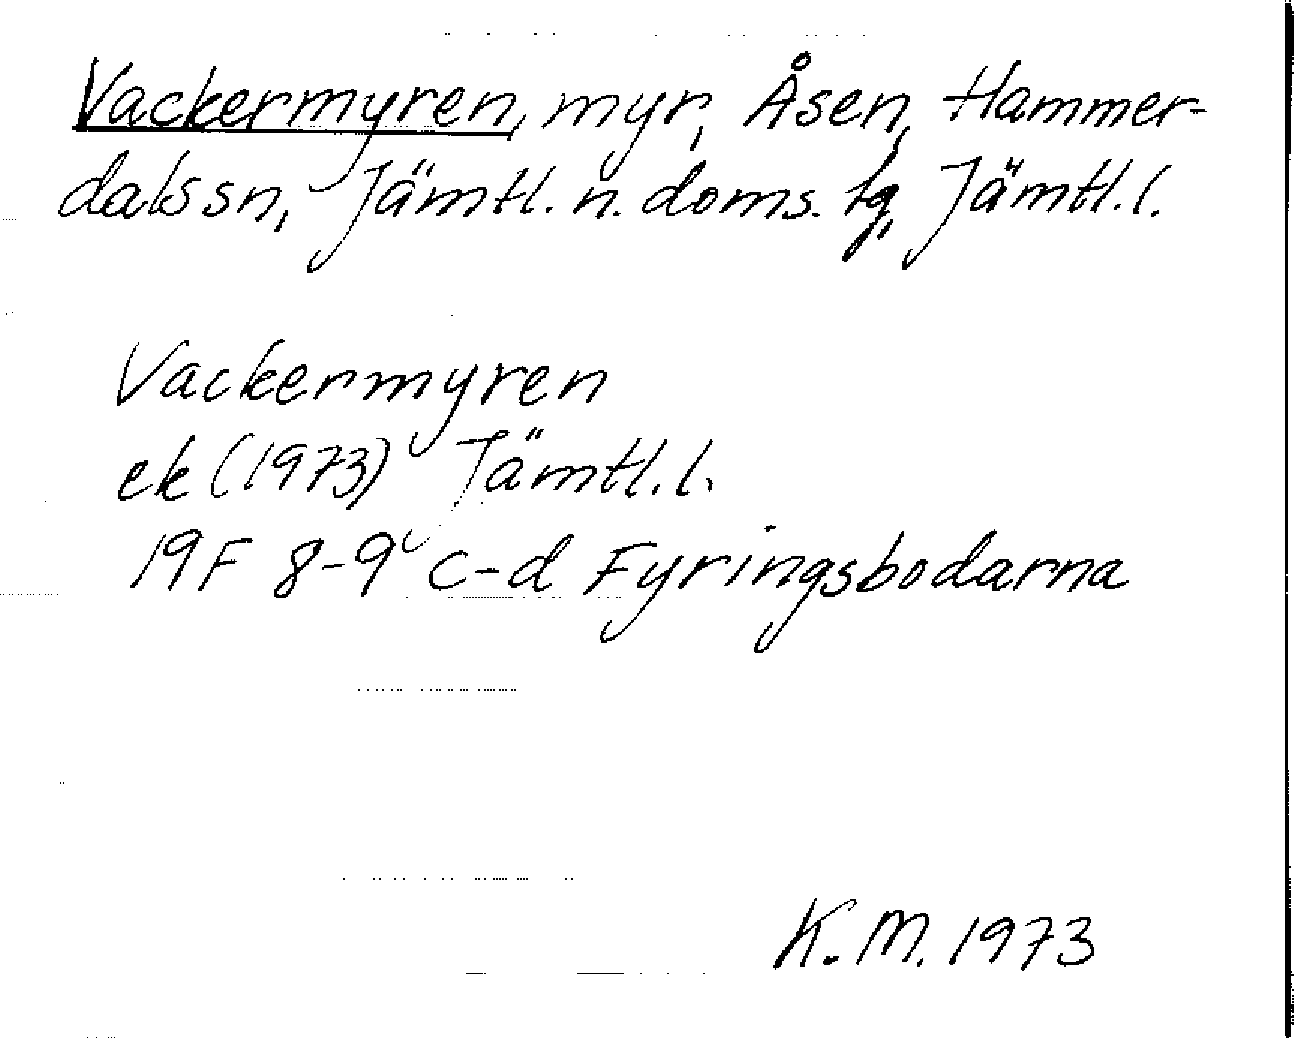 Vackermyren, myr, Åsen, Hammer-
dals sn, Jämtl. n. doms. tg, Jämtl. l.
Vackermyren
ek (1973) Jämtl. l.
19F 8-9 c-d Fyringsbodarna
K. M. 1973